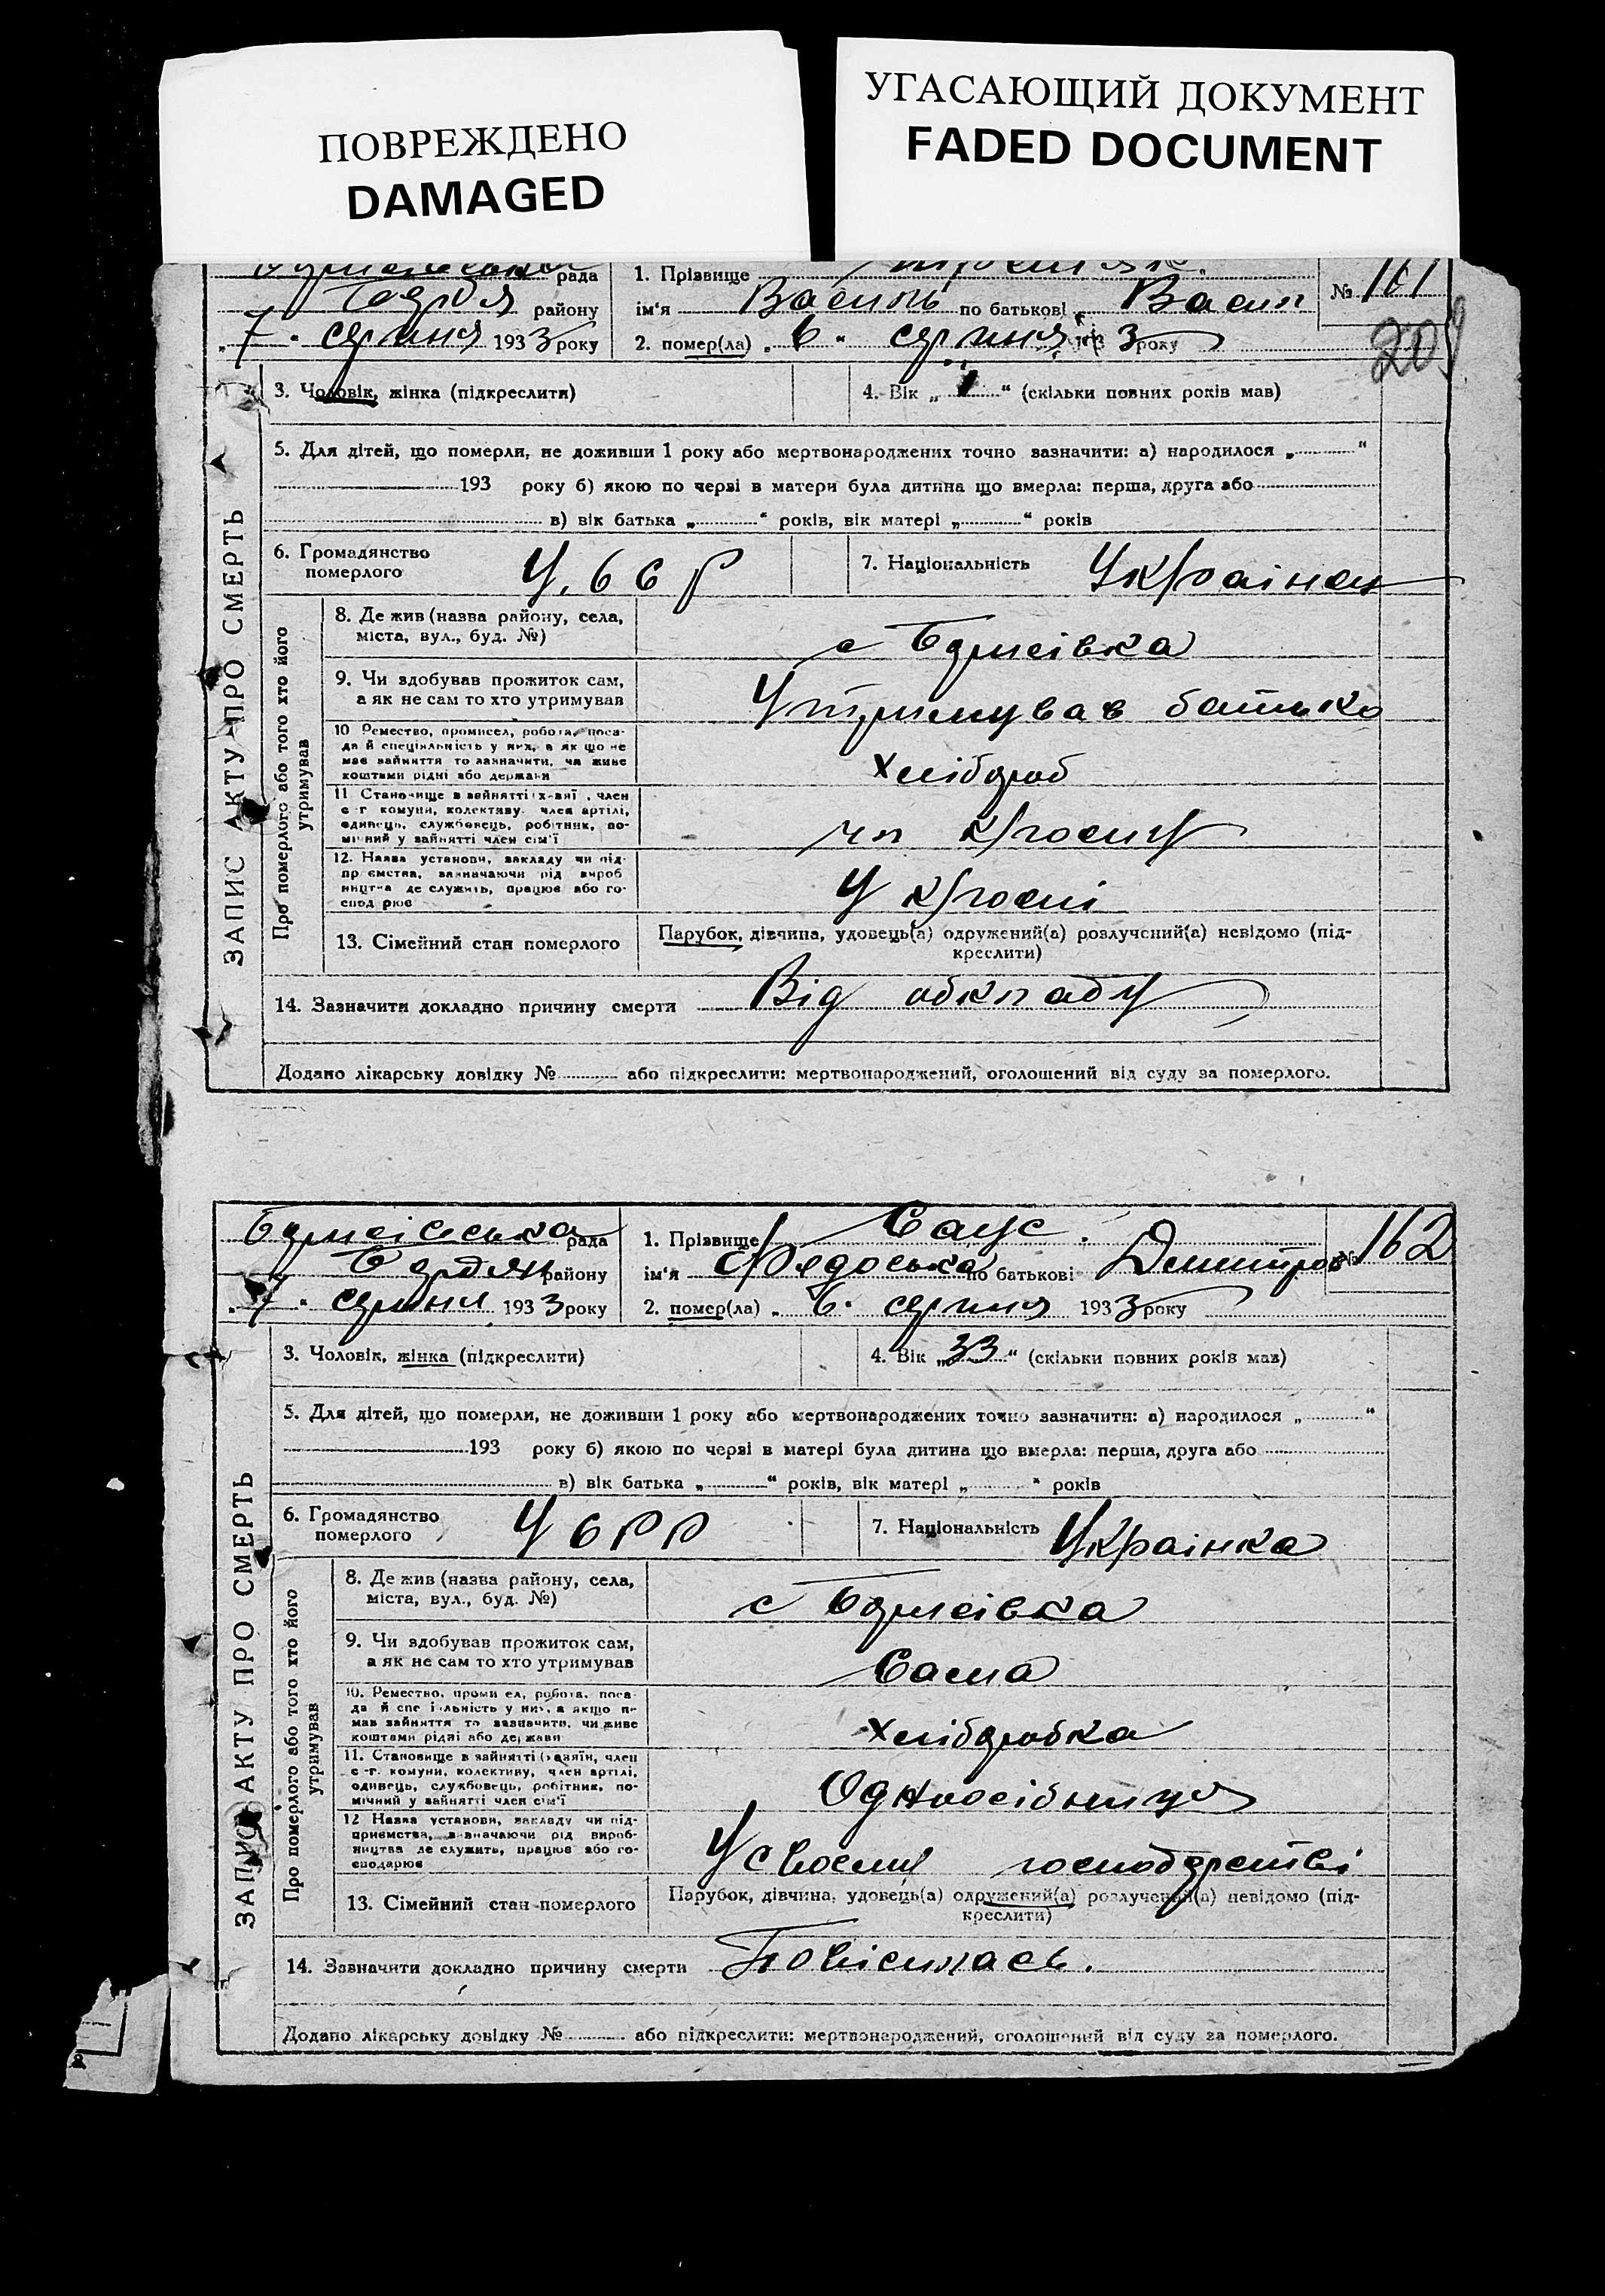 ПОВРЕЖДЕНО
DAMAGED
УГАСАЮЩИЙ ДОКУМЕНТ
FADED DOCUMENT
рада
району
7 серпня 1933 року
1. Прізвище
ім'я Василь по батькові Васил
2. помер(ла) „6“ серпня 193 3 року
№ 161
209
ЗАПИС АКТУ ПРО СМЕРТЬ
3. Чоловік, жінка (підкреслити)
4. Вік „1“ (скільки повних років мав)
5. Для дітей, що померли, не доживши 1 року або мертвонароджених точно зазначити: а) народилося „ “
193 року б) якою по черзі в матери була дитина що вмерла: перша, друга або
в) вік батька „ “ років, вік матері „ “ років
6. Громадянство
померлого
7. Національність Українец
Про померлого або того хто його
утримував
8. Де жив (назва району, села,
міста, вул., буд. №)
с
9. Чи здобував прожиток сам,
а як не сам то хто утримував
Утримував батько
10 Ремество, промисел, робота, поса-
да й спеціяльність у них, а як що не
має зайняття то зазначити, чи живе
коштами рідні або держави
Хлібороб
11 Становище в зайнятті х-вні, член
с-г комуни, колективу, член артілі,
одинець, службовець, робітник, по-
мічний у зайнятті член сім'ї
12. Назва установи, закладу чи під-
приємства, зазначаючи рід вироб
ництва де служить, працює або го-
спод рює
13. Сімейний стан померлого
Парубок, дівчина, удовець(а) одружений(а) розлучений(а) невідомо (під-
креслити)
14. Зазначити докладно причину смерти Від
Додано лікарську довідку № або підкреслити: мертвонароджений, оголошений від суду за померлого.
рада
району
7 серпня 1933 року
1. Прізвище Саус.
ім'я Федоська по батькові Дмитров
2. помер(ла) „6“ серпня 1933 року
№ 162
ЗАПИС АКТУ ПРО СМЕРТЬ
3. Чоловік, жінка (підкреслити)
4. Вік „33“ (скільки повних років мав)
5. Для дітей, що померли, не доживши 1 року або мертвонароджених точно зазначити: а) народилося „ “
193 року б) якою по черзі в матері була дитина що вмерла: перша, друга або
в) вік батька „ “ років, вік матері „ “ років
6. Громадянство
померлого
УСРР
7. Національність Українка
Про померлого або того хто його
утримував
8. Де жив (назва району, села,
міста, вул., буд. №)
с
9. Чи здобував прожиток сам,
а як не сам то хто утримував
Сама
10. Ремество, промисел, робота, поса-
да й спеціяльність у них, а якщо не
мав зайняття то зазначити, чи живе
коштами рідні або держави
Хліборобка
11. Становище в зайнятті (хазяїн, член
с-г. комуни, колективу, член артілі,
одинець, службовець, робітник, по-
мічний у зайнятті член сім'ї
Одноосібниця
12 Назва установи, закладу чи під-
приємства, зазначаючи рід вироб-
ництва де служить, працює або го-
сподарює
У своему господарстві
13. Сімейний стан померлого
Парубок, дівчина, удовець(а) одружений(а) розлучений(а) невідомо (під-
креслити)
14. Зазначити докладно причину смерти Повісилась.
Додано лікарську довідку № або підкреслити: мертвонароджений, оголошений від суду за померлого.